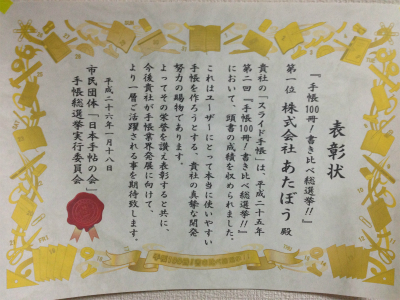 表彰状
『手帳100冊!書き比べ総選挙!!』
第一位 株式会社 あたぼう 殿
貴社の「スライド手帳」は、平成二十五年
第二回『手帳100冊!書き比べ総選挙!!』
において、頭書の成績を収められました。
これはユーザーにとって本当に使いやすい
手帳を作ろうとする、貴社の真摯な開発
努力の賜物であります。
よってその栄誉を讃え表彰すると共に、
今後貴社が手帳業界発展に向けて、
より一層ご活躍される事を期待致します。
平成二十六年一月十八日
市民団体「日本手帖の会」
手帳総選挙実行委員会